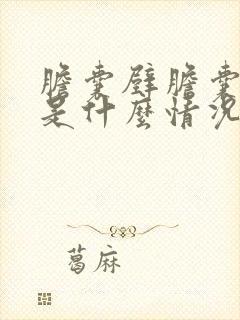 膽囊壁膽囊
是什麼情況
葛麻